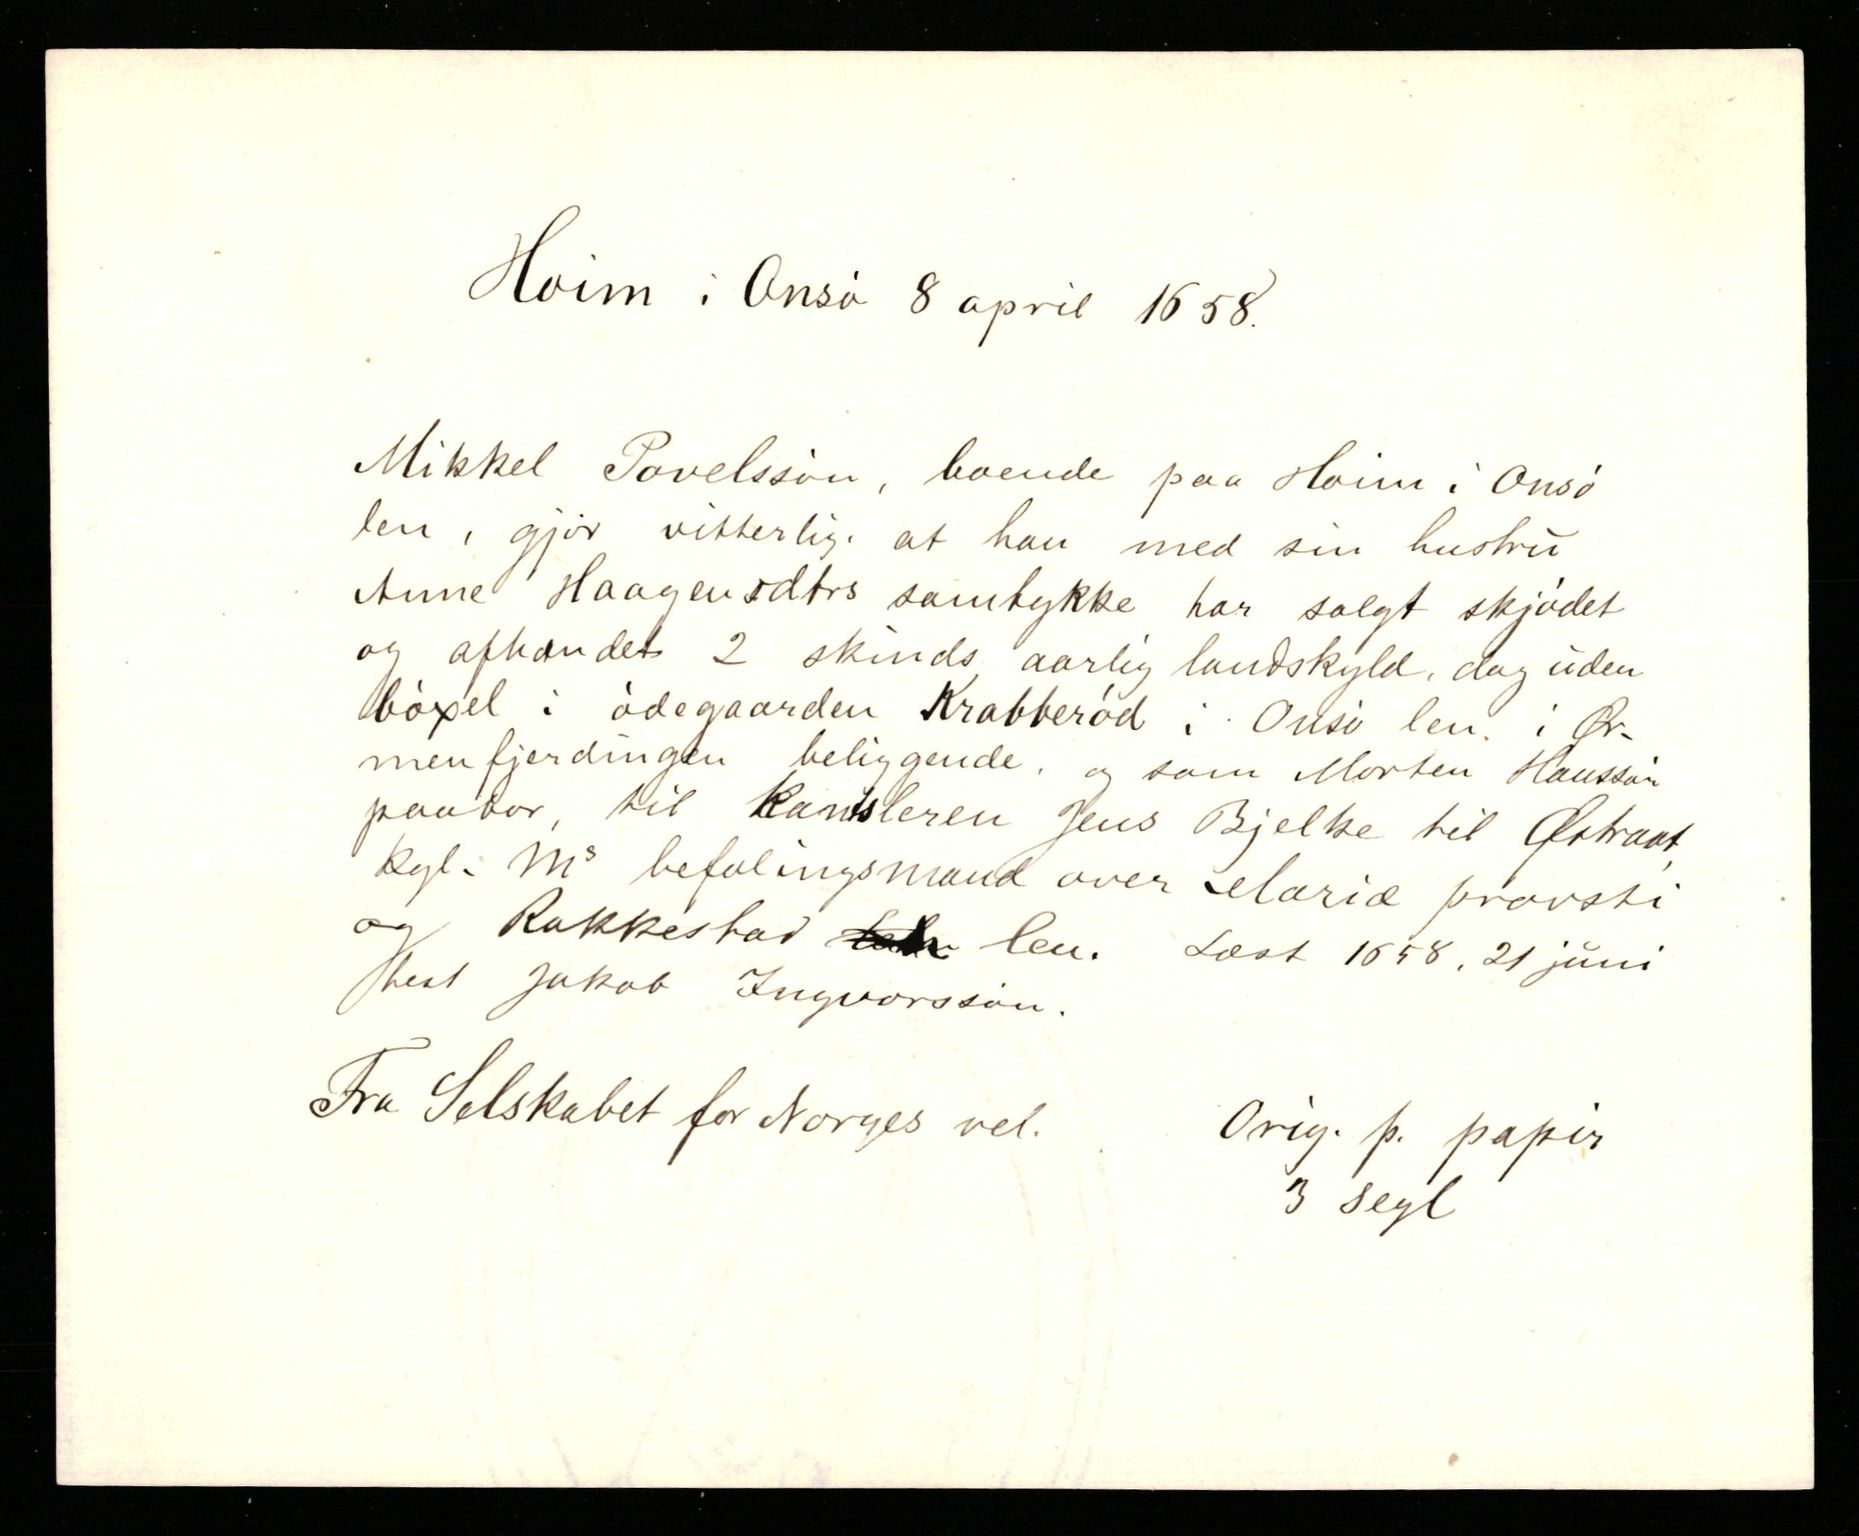 Hoim i Onsö 8 april 1658.
Mikkel Povelssön, boende paa Hoim i Onsö
len, gjör vitterlig. at han med sin hustrů
Anne Haagensdtrs samtykke har solgt skjödet
og afhændet 2 skinds aarlig landskyld, dog ůden
böxel i ödegaarden Krabberöd i Onsö len. i Ør-
menfjerdingen beliggende, og som Morten Hanssön
paabor, til kansleren Jens Bjelke til Østraat,
kgl. Ms befalingsmand over Mariæ provsti
og Rakkestad len. Læst 1658, 21 jůni
hest Jakob Ingvorssön.
Fra Selskabet for Norges vel.
Orig. p. papir
3 segl